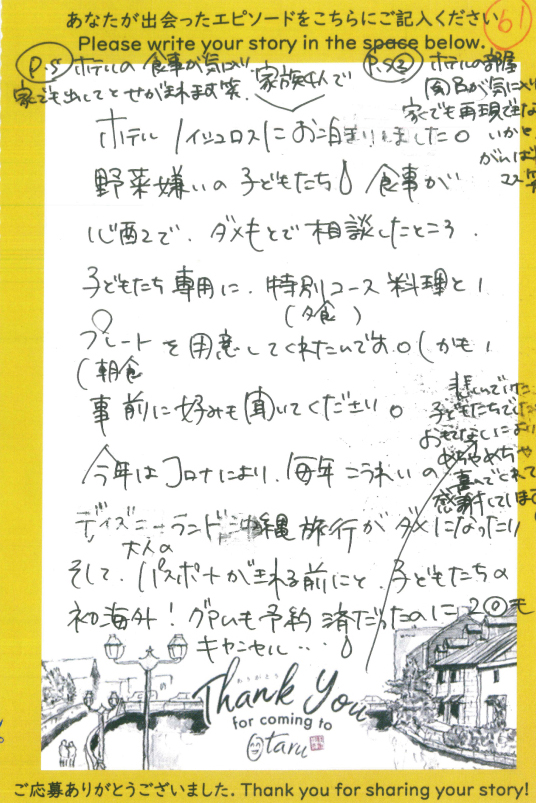 あなたが出会ったエピソードをこちらにご記入ください
61
Please write your story in the space below.
P.S ホテルの食事が気に入り
家でも出してとせがまれます笑
P.S2 ホテルの部屋
家でも再現できな
いかと
家族4人で
ホテルノイシュロスにお泊まりしました。
野菜嫌いの子どもたち 食事が
心配で、ダメもとで相談したところ、
子どもたち専用に、特別コース料理と、
(夕食)
プレートを用意してくれたんです。(しかも、
(朝食
事前に好みも聞いてくださり。
今年はコロナにより、毎年こうれいの
ディズニーランド 沖縄旅行がダメになったり
大人の
そして、パスポートが切れる前にと、子どもたちの
初海外!グアムも予約済だったのに2回も
キャンセル…
悲しんでいた
子どもたちでした
おもてなしにより
めちゃめちゃ
喜んでくれて
感謝しています
ありがとう
Thank You
for coming to
Otaru
ご応募ありがとうございました. Thank you for sharing your story!